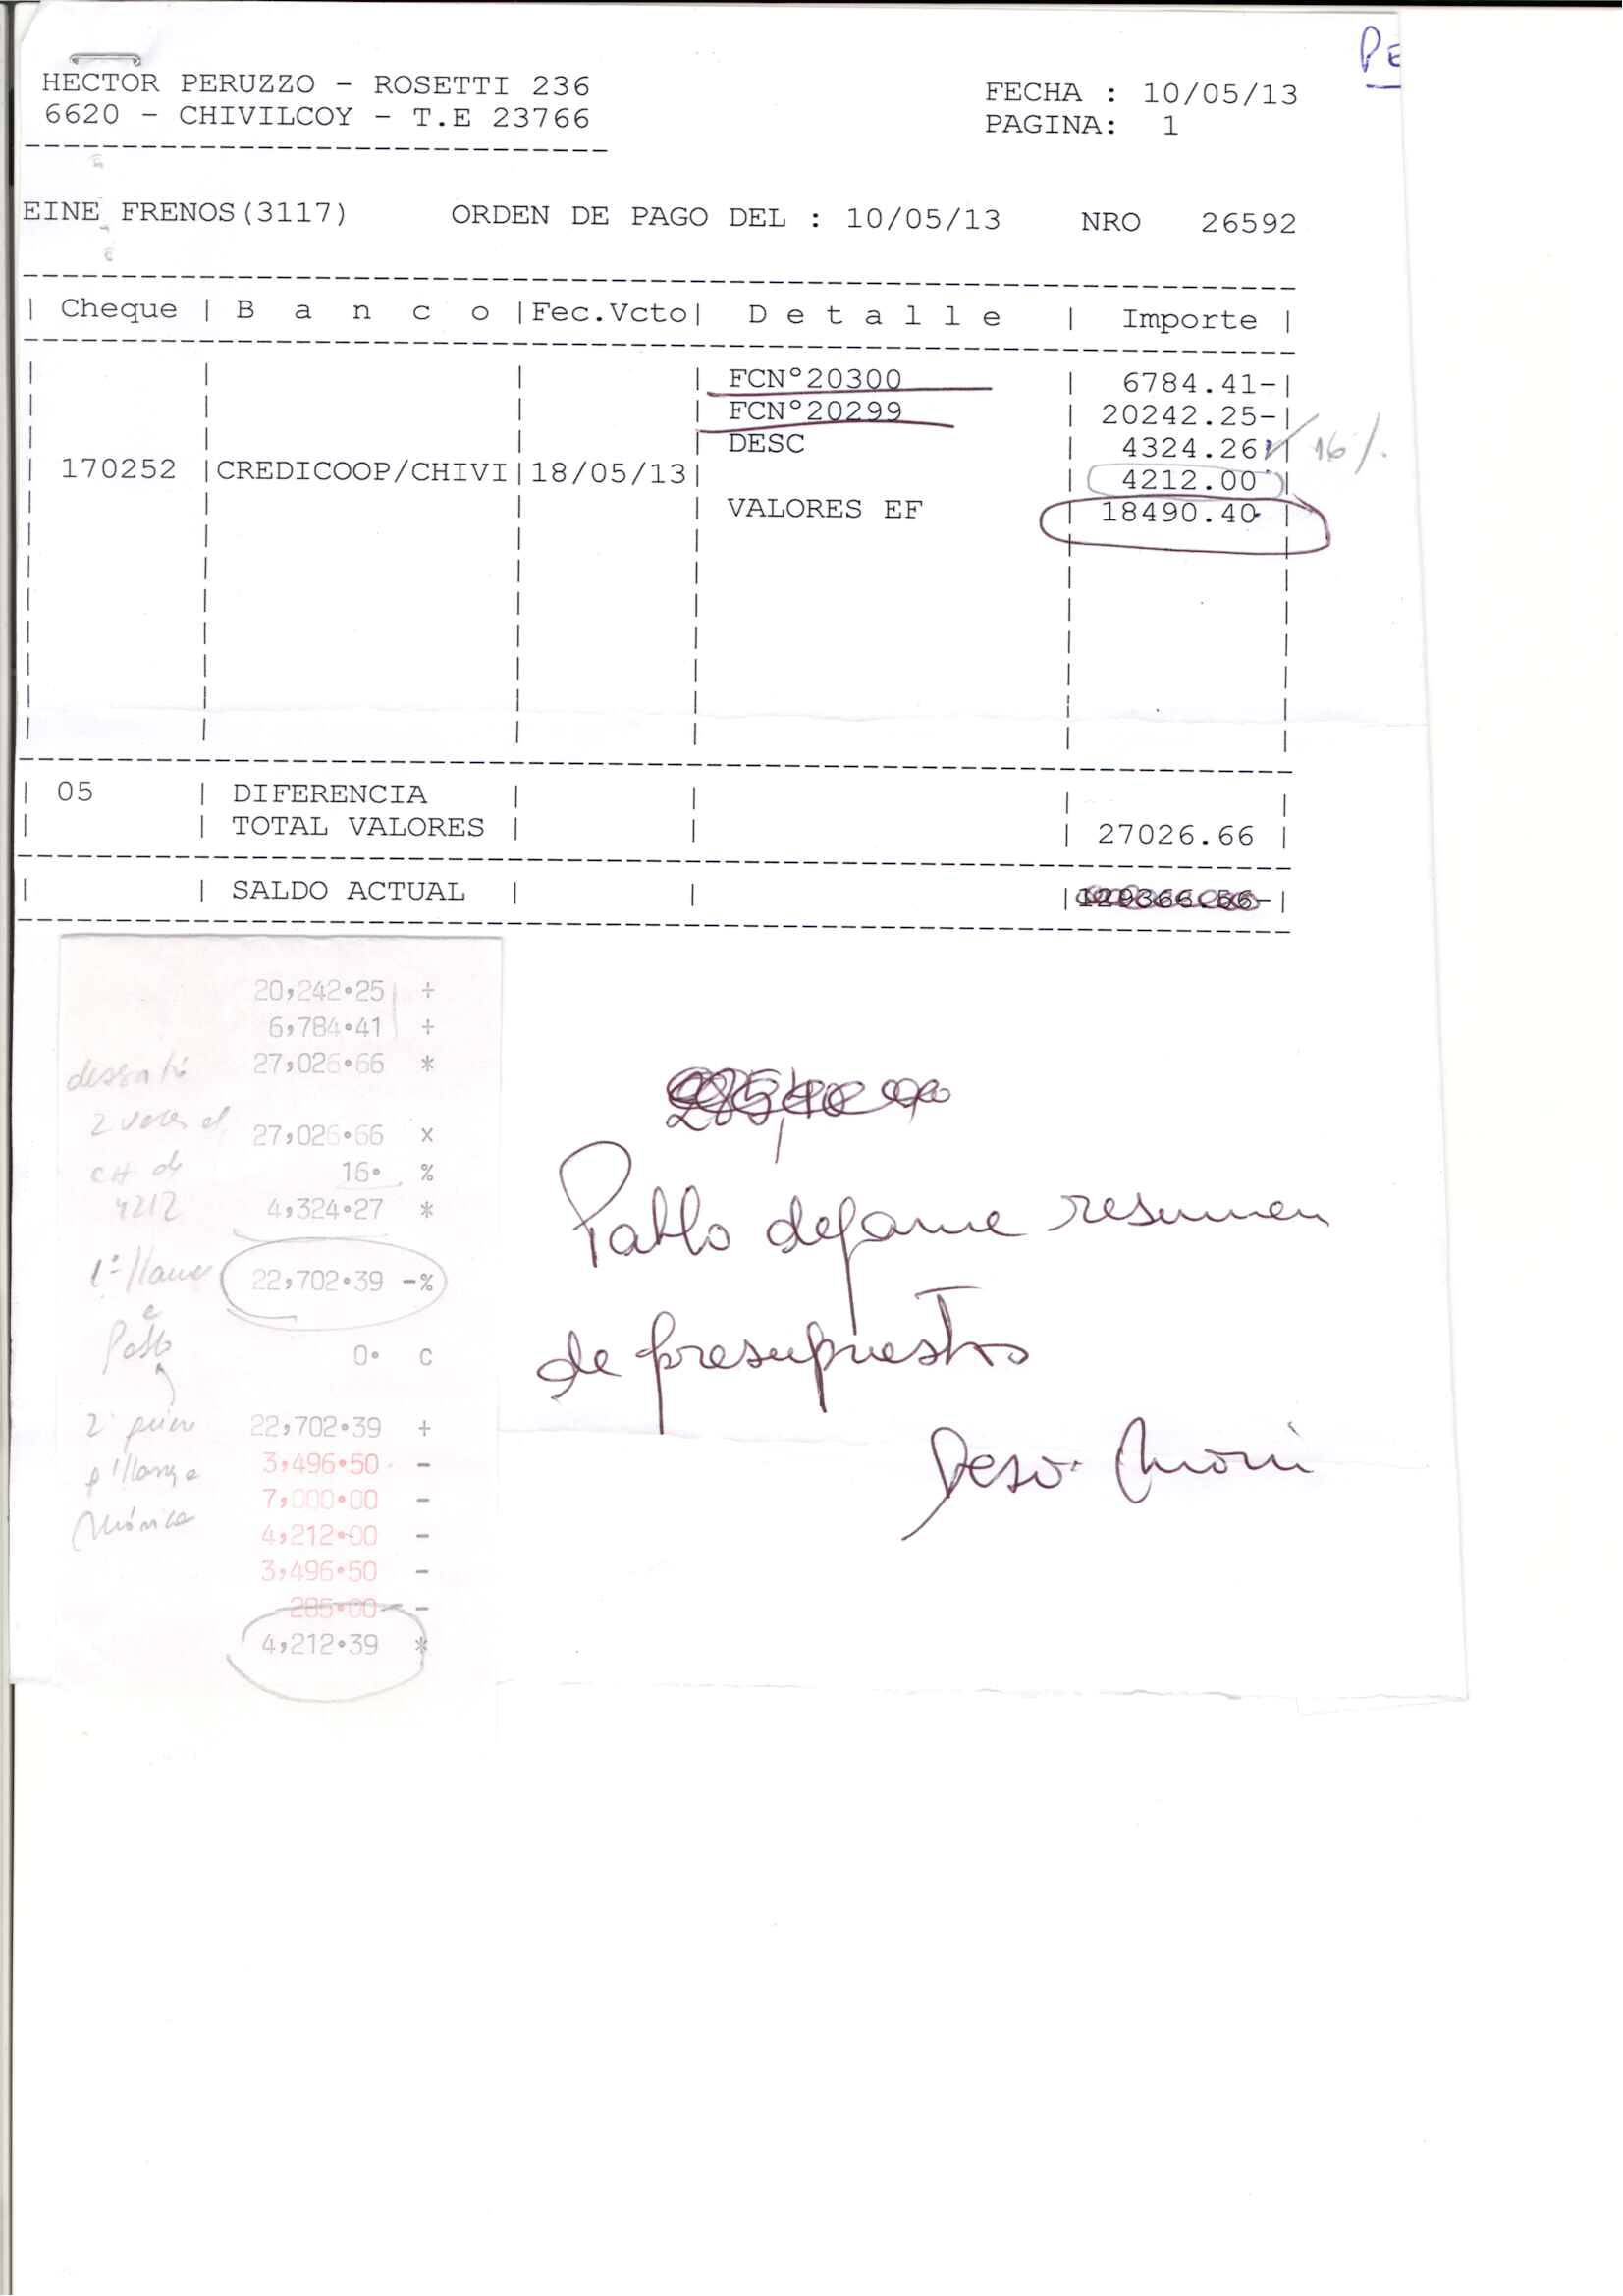 PE
HECTOR PERUZZO - ROSETTI 236
FECHA : 10/05/13
6620 - CHIVILCOY - T.E 23766
PAGINA: 1
EINE FRENOS(3117) ORDEN DE PAGO DEL : 10/05/13 NRO 26592
| Cheque | B a n c o |Fec.Vcto| D e t a l l e | Importe |
FCN°20300 | 6784.41-|
FCN°20299 | 20242.25-|
DESC | 4324.26 | 16%.
| 170252 |CREDICOOP/CHIVI|18/05/13| | 4212.00 |
VALORES EF | 18490.40 |
| 05 | DIFERENCIA | | | |
| | TOTAL VALORES | | | 27026.66 |
| | SALDO ACTUAL | | | |
20,242.25 +
6,784.41 +
27,026.66 *
2 veces el
27,026.66 x
CH de
16. %
4212
4,324.27 *
22,702.39 -%
Pablo
0. C
22,702.39 +
3,496.50 -
7,000.00 -
Mónica
4,212.00 -
3,496.50 -
285.00 -
4,212.39 *
Pablo dejame resumen
de presupuestos